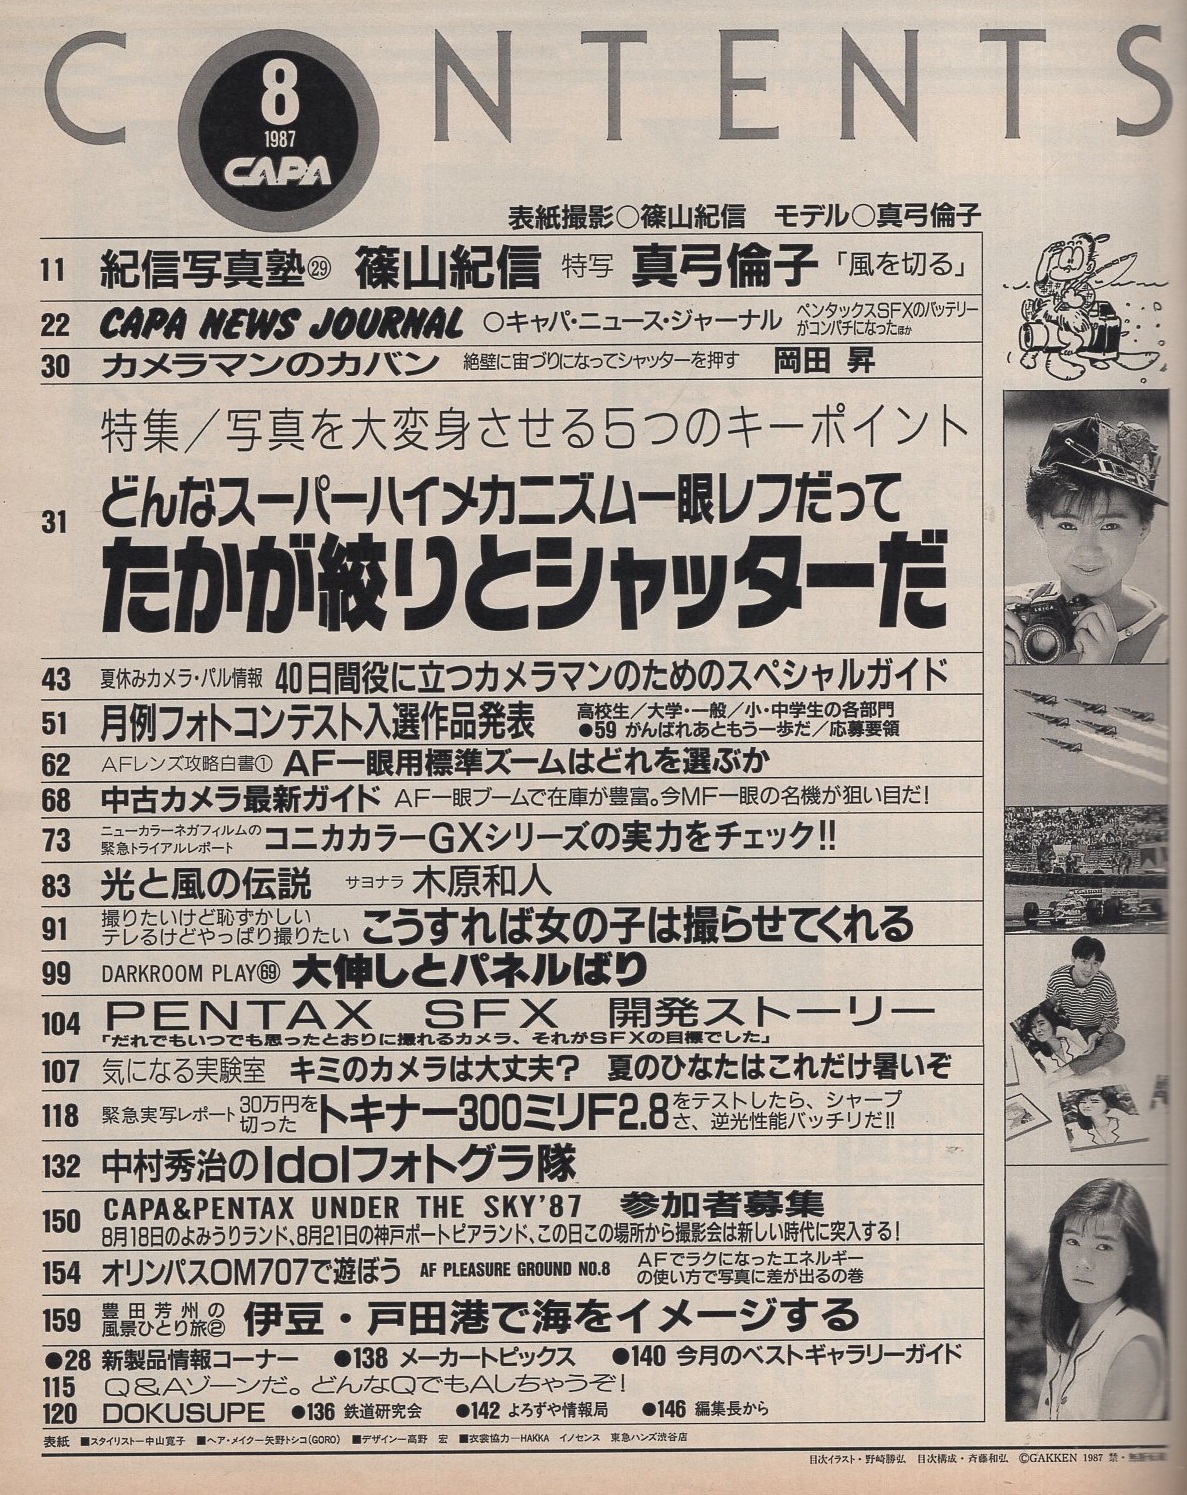 CONTENTS
8
1987
CAPA
表紙撮影○篠山紀信 モデル○真弓倫子
11 紀信写真塾㉙ 篠山紀信 特写 真弓倫子「風を切る」
22 CAPA NEWS JOURNAL ○キャパ・ニュース・ジャーナル ペンタックスSFXのバッテリー
がコンパチになったほか
30 カメラマンのカバン 絶壁に宙づりになってシャッターを押す 岡田 昇
特集／写真を大変身させる5つのキーポイント
31 どんなスーパーハイメカニズム一眼レフだって
たかが絞りとシャッターだ
43 夏休みカメラ・パル情報 40日間役に立つカメラマンのためのスペシャルガイド
51 月例フォトコンテスト入選作品発表 高校生／大学・一般／小・中学生の各部門
●59 がんばれあともう一歩だ／応募要領
62 AFレンズ攻略白書① AF一眼用標準ズームはどれを選ぶか
68 中古カメラ最新ガイド AF一眼ブームで在庫が豊富。今MF一眼の名機が狙い目だ!
73 ニューカラーネガフィルムの
緊急トライアルレポート コニカカラーGXシリーズの実力をチェック!!
83 光と風の伝説 サヨナラ 木原和人
91 撮りたいけど恥ずかしい
テレるけどやっぱり撮りたい こうすれば女の子は撮らせてくれる
99 DARKROOM PLAY㊴ 大伸しとパネルばり
104 PENTAX SFX 開発ストーリー
「だれでもいつでも思ったとおりに撮れるカメラ、それがSFXの目標でした」
107 気になる実験室 キミのカメラは大丈夫? 夏のひなたはこれだけ暑いぞ
118 緊急実写レポート 30万円を
切った トキナー300ミリF2.8 をテストしたら、シャープ
さ、逆光性能バッチリだ!!
132 中村秀治のIdolフォトグラ隊
150 CAPA&PENTAX UNDER THE SKY'87 参加者募集
8月18日のよみうりランド、8月21日の神戸ポートピアランド、この日この場所から撮影会は新しい時代に突入する!
154 オリンパスOM707で遊ぼう AF PLEASURE GROUND NO.8 AFでラクになったエネルギー
の使い方で写真に差が出るの巻
159 豊田芳州の
風景ひとり旅② 伊豆・戸田港で海をイメージする
●28 新製品情報コーナー ●138 メーカートピックス ●140 今月のベストギャラリーガイド
115 Q&Aゾーンだ。どんなQでもAしちゃうぞ!
120 DOKUSUPE ●136 鉄道研究会 ●142 よろずや情報局 ●146 編集長から
表紙 ■スタイリスト―中山寛子 ■ヘア・メイク―矢野トシコ(GORO) ■デザイン―高野 宏 ■衣裳協力―HAKKA イノセンス 東急ハンズ渋谷店
目次イラスト・野崎勝弘 目次構成・斉藤和弘 ©GAKKEN 1987 禁・
LEICA